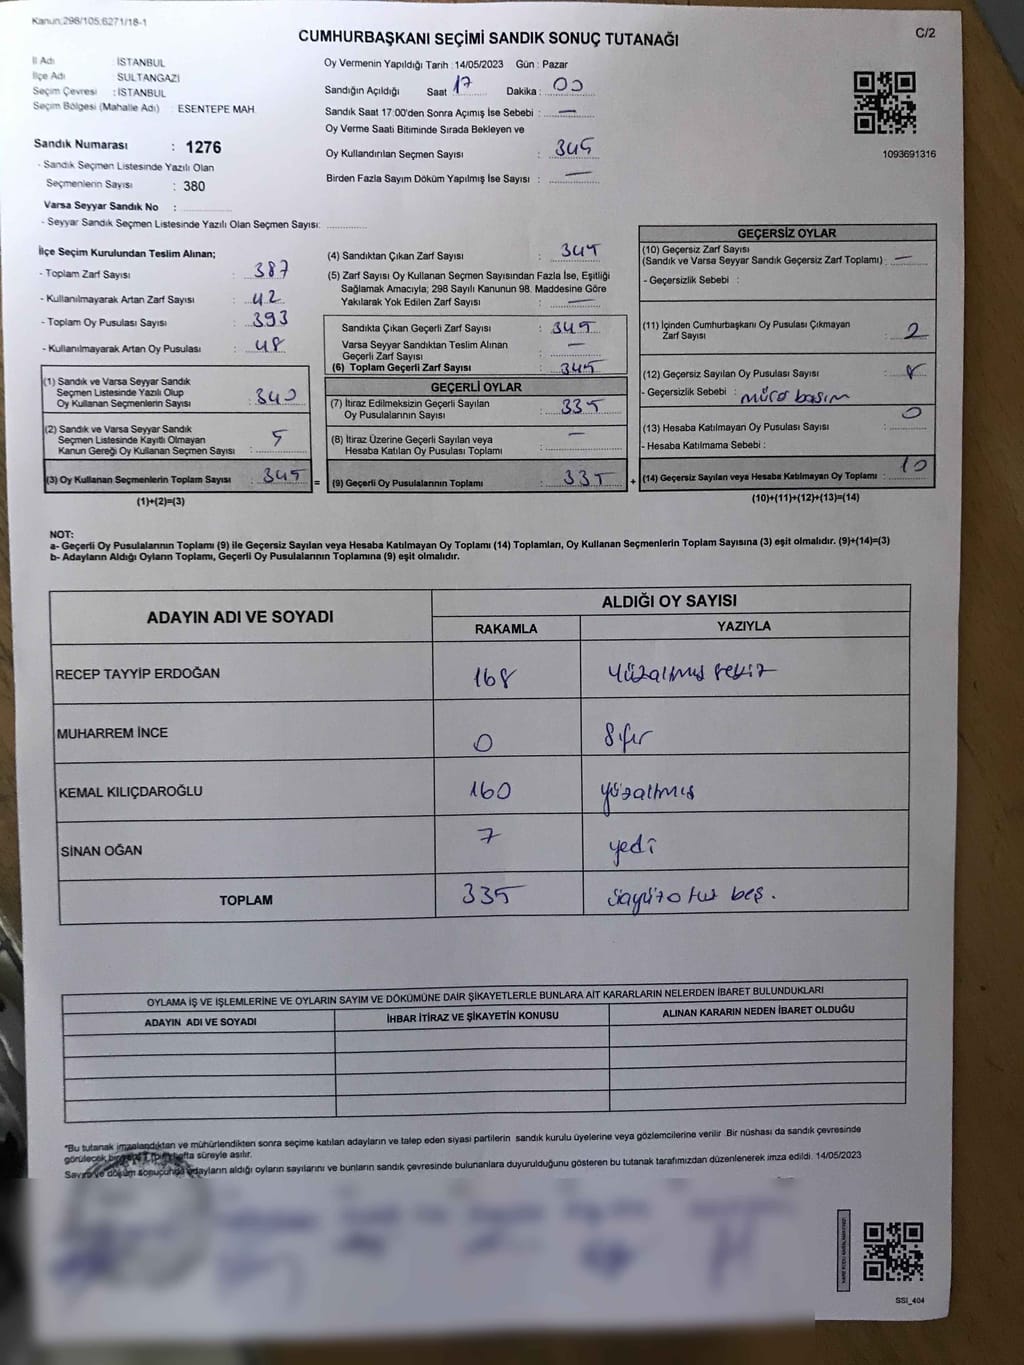 Kanun,298/105,6271/18-1
C/2
CUMHURBAŞKANI SEÇİMİ SANDIK SONUÇ TUTANAĞI
İl Adı İSTANBUL
İlçe Adı SULTANGAZİ
Seçim Çevresi : İSTANBUL
Seçim Bölgesi (Mahalle Adı) : ESENTEPE MAH.
Sandık Numarası : 1276
- Sandık Seçmen Listesinde Yazılı Olan
Seçmenlerin Sayısı : 380
Varsa Seyyar Sandık No :
- Seyyar Sandık Seçmen Listesinde Yazılı Olan Seçmen Sayısı:
Oy Vermenin Yapıldığı Tarih : 14/05/2023 Gün : Pazar
Sandığın Açıldığı Saat 17 Dakika : 00
Sandık Saat 17:00'den Sonra Açımış İse Sebebi : —
Oy Verme Saati Bitiminde Sırada Bekleyen ve
Oy Kullandırılan Seçmen Sayısı : 345
Birden Fazla Sayım Döküm Yapılmış İse Sayısı : —
1093691316
İlçe Seçim Kurulundan Teslim Alınan;
- Toplam Zarf Sayısı : 387
- Kullanılmayarak Artan Zarf Sayısı : 42
- Toplam Oy Pusulası Sayısı : 393
- Kullanılmayarak Artan Oy Pusulası : 48
(1) Sandık ve Varsa Seyyar Sandık
Seçmen Listesinde Yazılı Olup
Oy Kullanan Seçmenlerin Sayısı : 340
(2) Sandık ve Varsa Seyyar Sandık
Seçmen Listesinde Kayıtlı Olmayan
Kanun Gereği Oy Kullanan Seçmen Sayısı : 5
(3) Oy Kullanan Seçmenlerin Toplam Sayısı : 345 =
(1)+(2)=(3)
(4) Sandıktan Çıkan Zarf Sayısı : 345
(5) Zarf Sayısı Oy Kullanan Seçmen Sayısından Fazla İse, Eşitliği
Sağlamak Amacıyla; 298 Sayılı Kanunun 98. Maddesine Göre
Yakılarak Yok Edilen Zarf Sayısı : —
Sandıkta Çıkan Geçerli Zarf Sayısı : 345
Varsa Seyyar Sandıktan Teslim Alınan
Geçerli Zarf Sayısı : —
(6) Toplam Geçerli Zarf Sayısı : 345
GEÇERLİ OYLAR
(7) İtiraz Edilmeksizin Geçerli Sayılan
Oy Pusulalarının Sayısı : 335
(8) İtiraz Üzerine Geçerli Sayılan veya
Hesaba Katılan Oy Pusulası Toplamı : —
(9) Geçerli Oy Pusulalarının Toplamı : 335 +
GEÇERSİZ OYLAR
(10) Geçersiz Zarf Sayısı
(Sandık ve Varsa Seyyar Sandık Geçersiz Zarf Toplamı) : —
- Geçersizlik Sebebi :
(11) İçinden Cumhurbaşkanı Oy Pusulası Çıkmayan
Zarf Sayısı : 2
(12) Geçersiz Sayılan Oy Pusulası Sayısı : 8
- Geçersizlik Sebebi : basım
(13) Hesaba Katılmayan Oy Pusulası Sayısı : 0
- Hesaba Katılmama Sebebi :
(14) Geçersiz Sayılan veya Hesaba Katılmayan Oy Toplamı : 10
(10)+(11)+(12)+(13)=(14)
NOT:
a- Geçerli Oy Pusulalarının Toplamı (9) ile Geçersiz Sayılan veya Hesaba Katılmayan Oy Toplamı (14) Toplamları, Oy Kullanan Seçmenlerin Toplam Sayısına (3) eşit olmalıdır. (9)+(14)=(3)
b- Adayların Aldığı Oyların Toplamı, Geçerli Oy Pusulalarının Toplamına (9) eşit olmalıdır.
ADAYIN ADI VE SOYADI ALDIĞI OY SAYISI
RAKAMLA YAZIYLA
RECEP TAYYİP ERDOĞAN 168 yüzaltmış sekiz
MUHARREM İNCE 0 Sıfır
KEMAL KILIÇDAROĞLU 160 yüzaltmış
SİNAN OĞAN 7 yedi
TOPLAM 335 beş.
OYLAMA İŞ VE İŞLEMLERİNE VE OYLARIN SAYIM VE DÖKÜMÜNE DAİR ŞİKAYETLERLE BUNLARA AİT KARARLARIN NELERDEN İBARET BULUNDUKLARI
ADAYIN ADI VE SOYADI İHBAR İTİRAZ VE ŞİKAYETİN KONUSU ALINAN KARARIN NEDEN İBARET OLDUĞU
"Bu tutanak imzalandıktan ve mühürlendikten sonra seçime katılan adayların ve talep eden siyasi partilerin sandık kurulu üyelerine veya gözlemcilerine verilir. Bir nüshası da sandık çevresinde
görülecek hafta süreyle asılır.
Sayım ve döküm sonucunda adayların aldığı oyların sayılarını ve bunların sandık çevresinde bulunanlara duyurulduğunu gösteren bu tutanak tarafımızdan düzenlenerek imza edildi. 14/05/2023
SSI_404